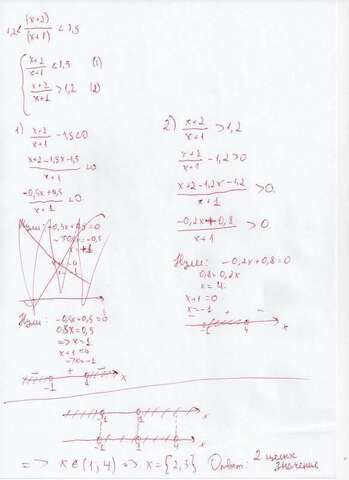 1,2 < (x+2)/(x+1) < 1,5
{ (x+2)/(x+1) < 1,5 (1)
(x+2)/(x+1) > 1,2 (2)
1) (x+2)/(x+1) - 1,5 < 0
(x+2-1,5x-1,5)/(x+1) < 0
(-0,5x+0,5)/(x+1) < 0
Нули: -0,5x+0,5=0
Нули: -0,5x+0,5=0
0,5x=0,5
=> x=1
x+1≠0
=> x≠-1
- + -
-1 1 x
2) (x+2)/(x+1) > 1,2
(x+2)/(x+1) - 1,2 > 0
(x+2-1,2x-1,2)/(x+1) > 0
(-0,2x+0,8)/(x+1) > 0
Нули: -0,2x+0,8=0
0,8=0,2x
x=4
x+1=0
x=-1
- + -
-1 4 x
-1 1 x
-1 1 4 x
=> x∈(1,4) => x={2,3} Ответ: 2 целых значения